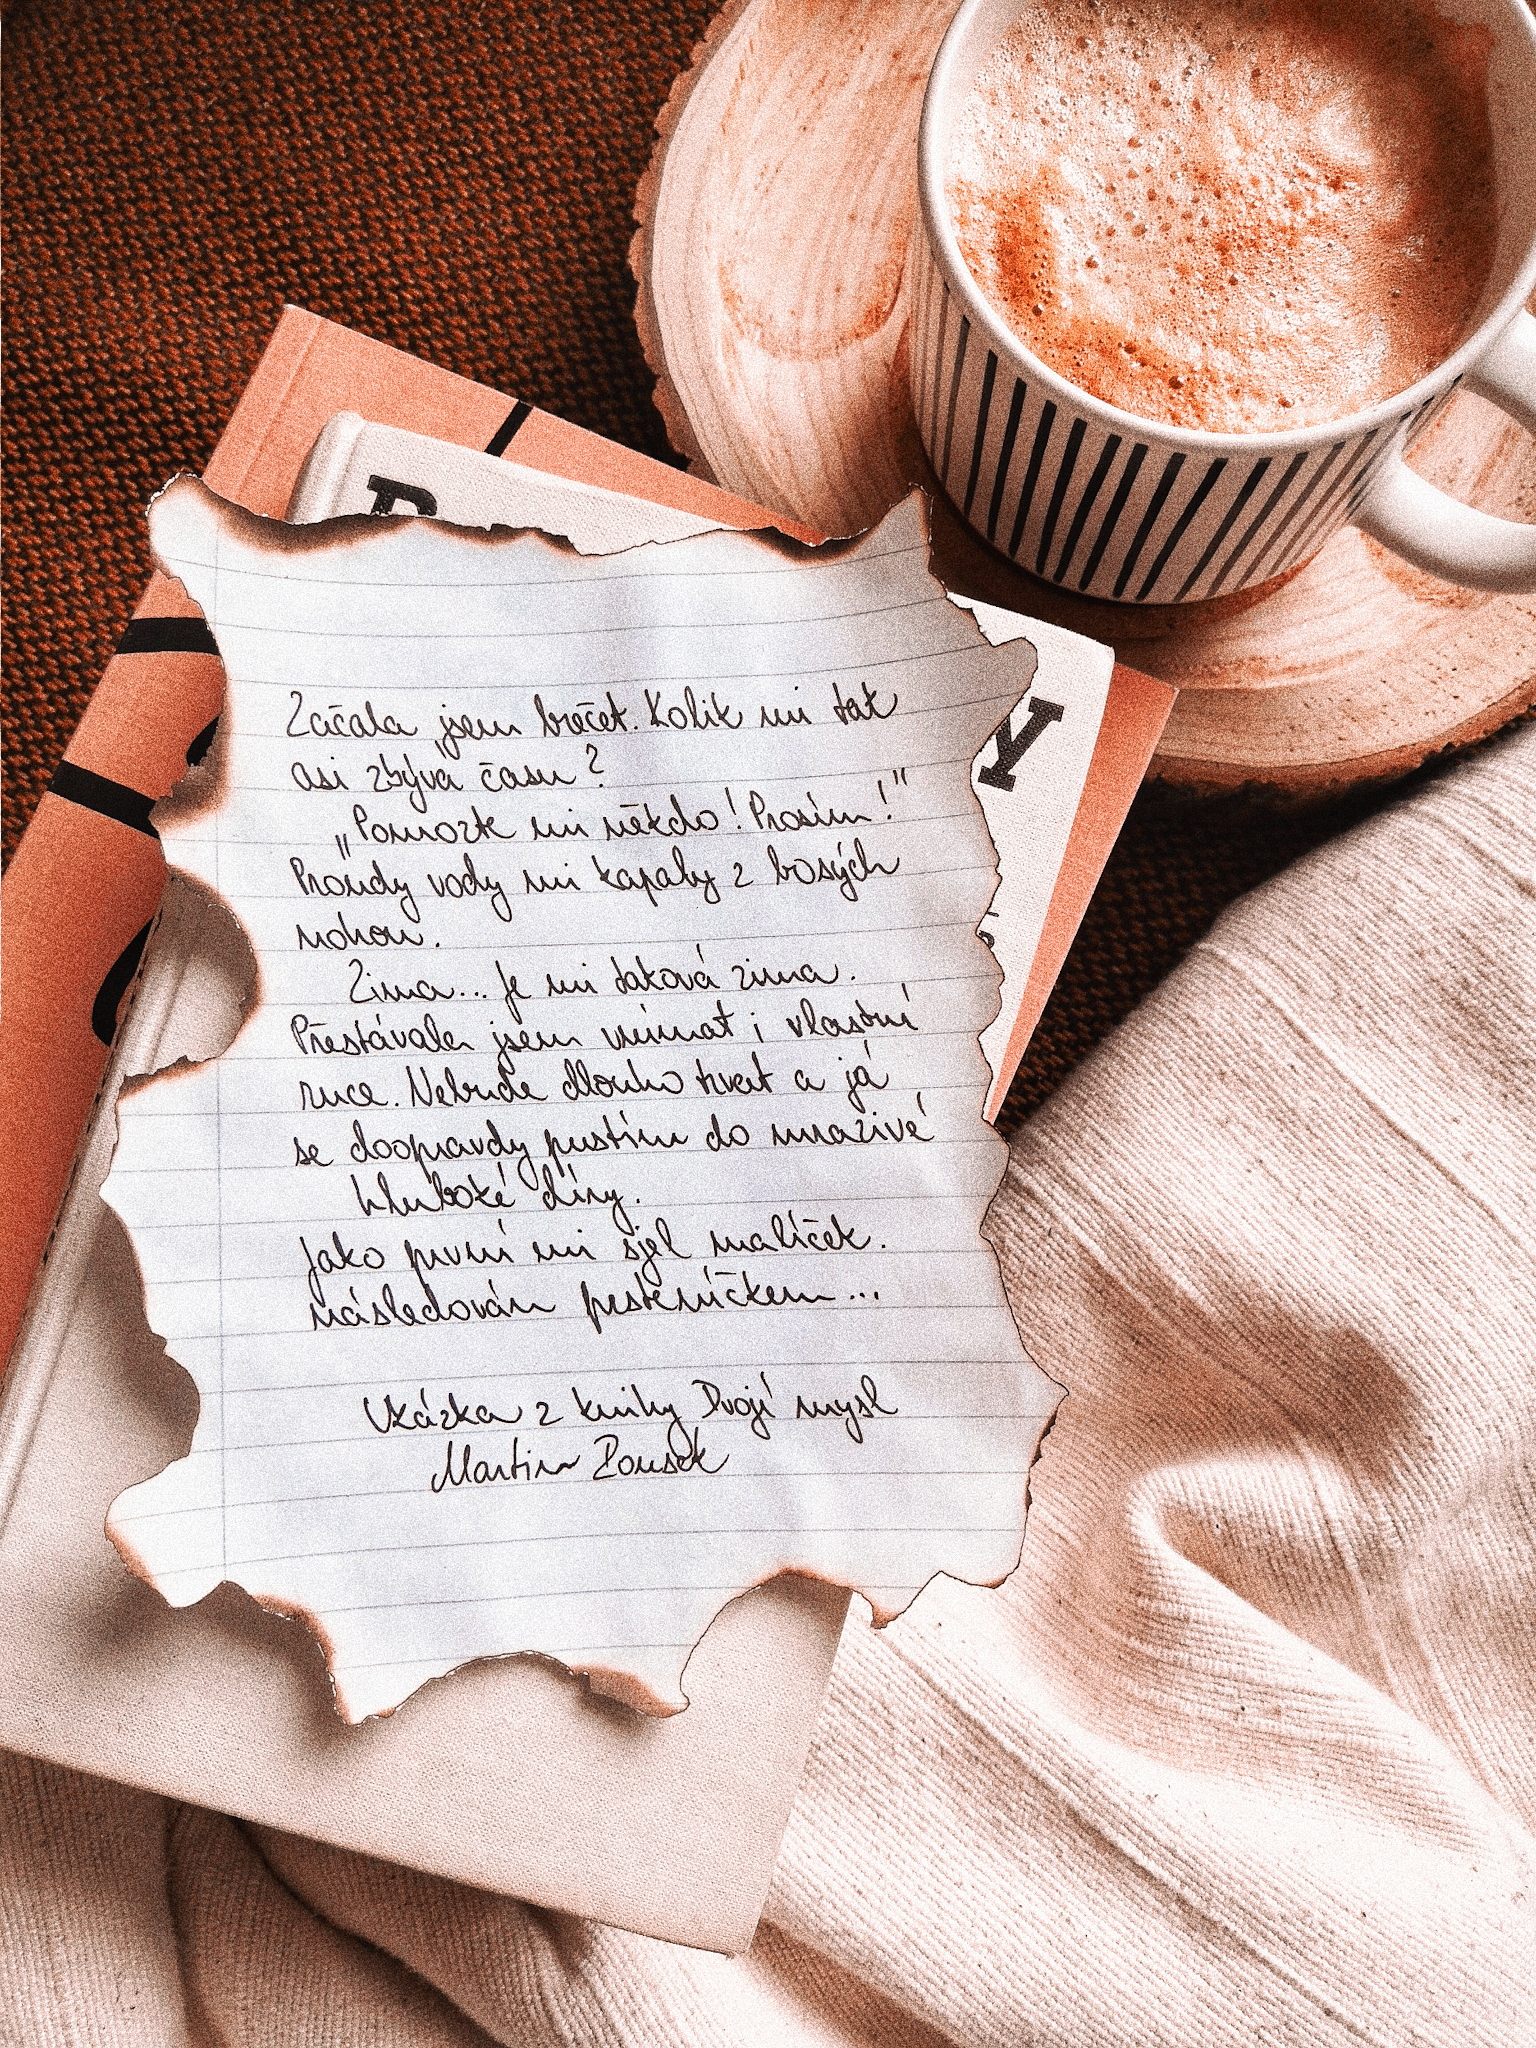 Začala jsem brečet. Kolik mi tak
asi zbývá času?
„Pomozte mi někdo! Prosím!"
Proudy vody mi kapaly z bosých
nohou.
Zima... Je mi taková zima.
Přestávala jsem vnímat i vlastní
ruce. Nebude dlouho trvat a já
se doopravdy pustím do mrazivé
hluboké díry.
Jako první mi sjel malíček.
následován prsteníčkem...
Ukázka z knihy Dvojí mysl
Martin Pousek
Y